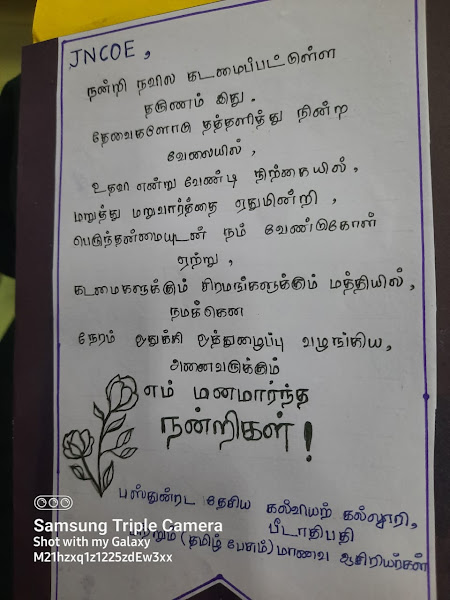 JNCOE,
நன்றி நவில கடமைப்பட்டுள்ள
தருணம் இது.
தேவைகளோடு தத்தளித்து நின்ற
வேலையில்,
உதவி என்று வேண்டி நிற்கையில்,
மறுத்து மறுவார்த்தை ஏதுமின்றி,
பெருந்தன்மையுடன் நம் வேண்டுகோள்
ஏற்று,
கடமைகளுக்கும் சிரமங்களுக்கும் மத்தியில்,
நமக்கென
நேரம் ஒதுக்கி ஒத்துழைப்பு வழங்கிய,
அனைவருக்கும்
எம் மனமார்ந்த
நன்றிகள்!
பஸ்துன்றட தேசிய கல்வியற் கல்லூரி,
பீடாதிபதி
மற்றும் (தமிழ் பேசும்) மாணவ ஆசிரியர்கள்
Samsung Triple Camera
Shot with my Galaxy
M21hzxq1z1225zdEw3xx